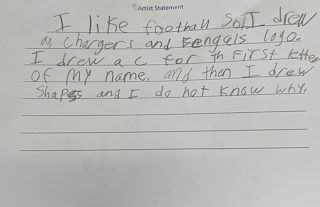 Artist Statement
I like football so I drew
a chargers and Bengals logo.
I drew a c for th First letter
of my name, and then I drew
shapes and I do not know why.